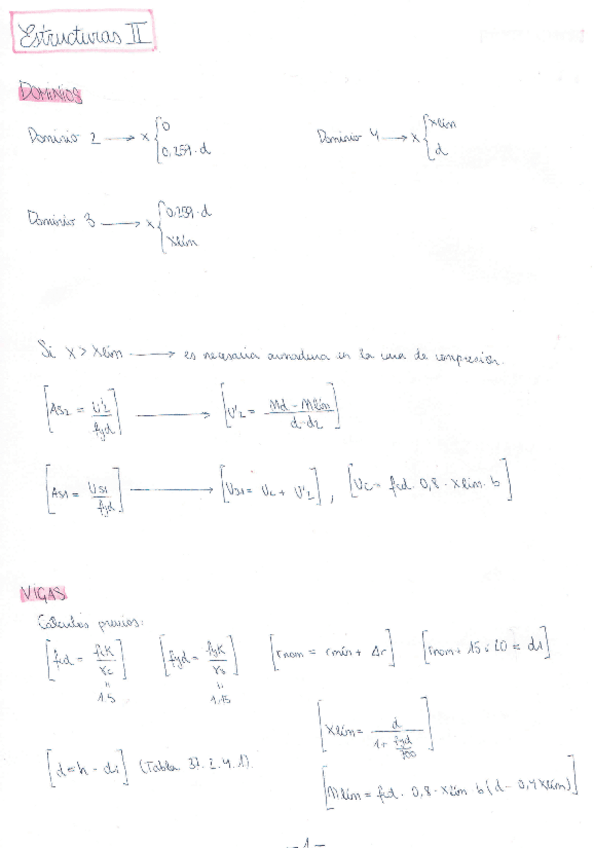 Estructuras II
DOMINIOS
Dominio 2 → x { 0
0,259·d
Dominio 4 → x { xlím
d
Dominio 3 → x { 0,259·d
xlím
Si x > xlím → es necesaria armadura en la cara de compresión.
[As2 = U'2 / fyd] → [U'2 = Md - Mlím / d-d2]
[As1 = Us1 / fyd] → [Us1 = Uc + U'2], [Uc = fcd · 0,8 · xlím · b]
VIGAS
Cálculos previos:
[fcd = fck / γc] [fyd = fyk / γs] [rnom = rmín + Δr] [rnom + 15 ó 20 = d1]
1.5 1,15
[xlím = d / 1 + fyd/700]
[d = h - d1] (Tabla 37.2.4.1)
[Mlím = fcd · 0,8 · xlím · b (d - 0,4 xlím)]
-1-